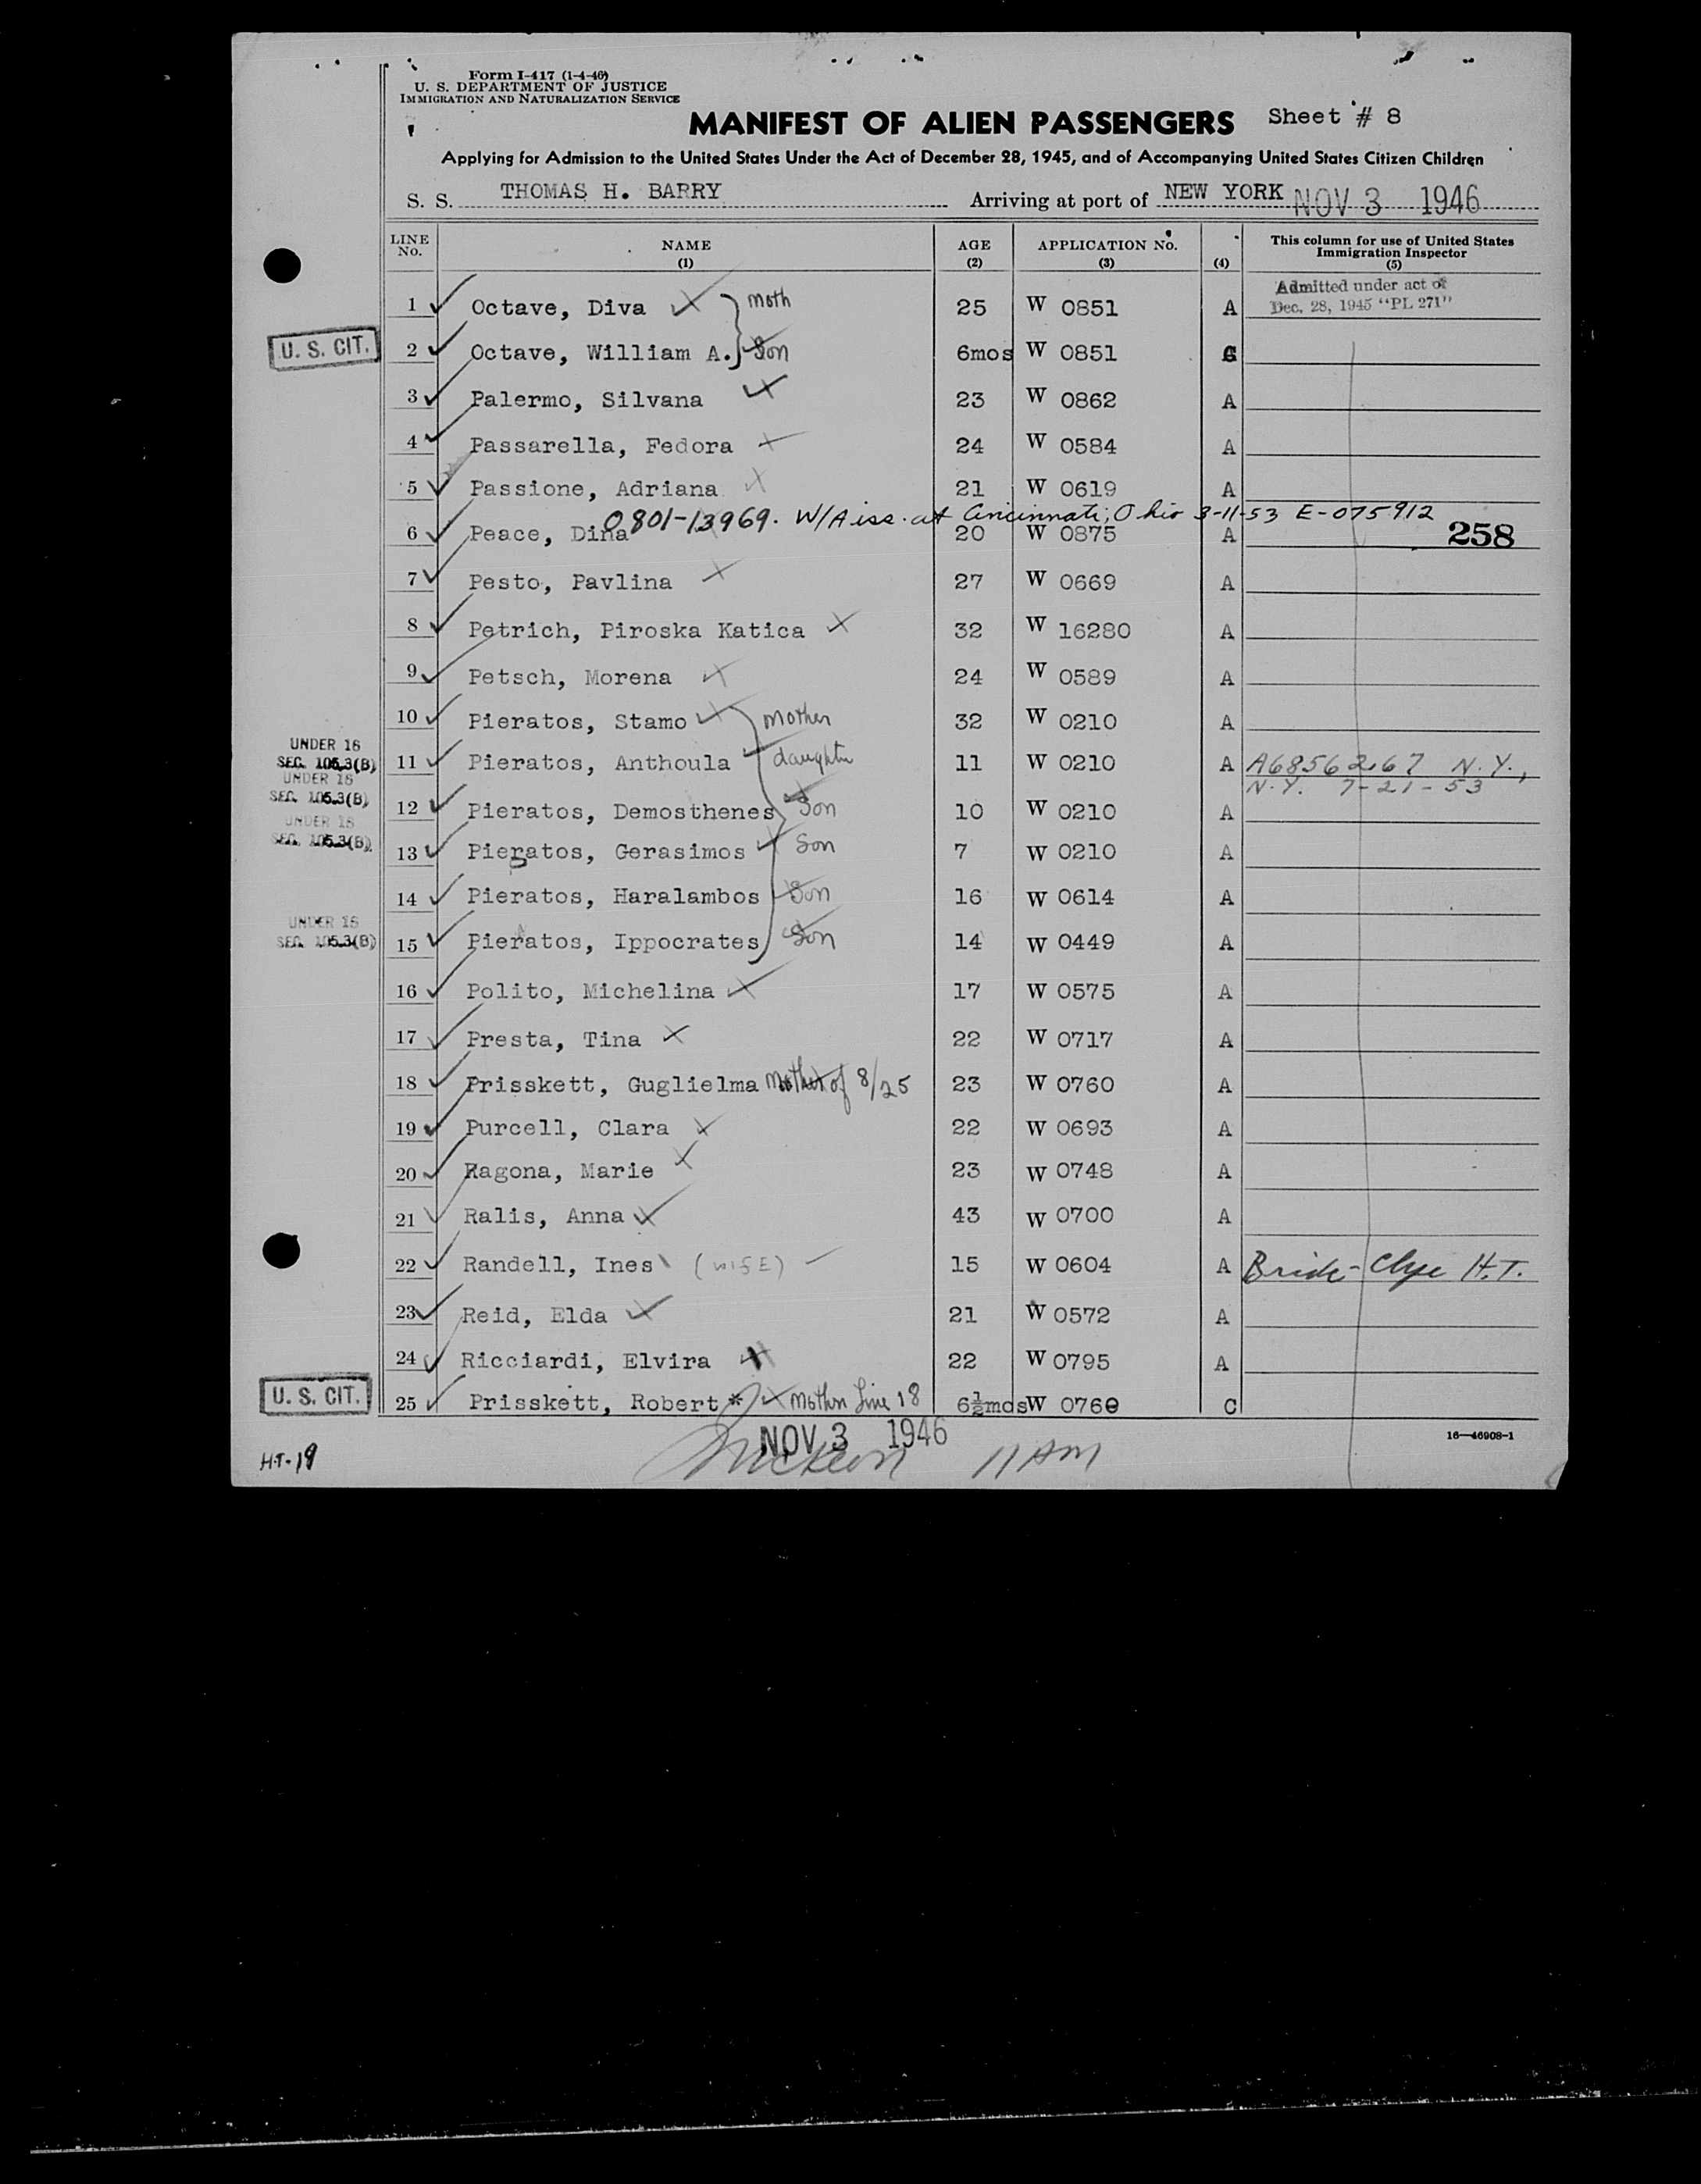 Form I-417 (1-4-46)
U. S. DEPARTMENT OF JUSTICE
IMMIGRATION AND NATURALIZATION SERVICE
MANIFEST OF ALIEN PASSENGERS Sheet # 8
Applying for Admission to the United States Under the Act of December 28, 1945, and of Accompanying United States Citizen Children
S. S. THOMAS H. BARRY Arriving at port of NEW YORK NOV 3 1946
LINE No. NAME (1) AGE (2) APPLICATION No. (3) (4) This column for use of United States Immigration Inspector (5)
Admitted under act of
Dec. 28, 1945 "PL 271"
1 Octave, Diva moth 25 W 0851 A
U. S. CIT. 2 Octave, William A. Son 6mos W 0851 C
3 Palermo, Silvana 23 W 0862 A
4 Passarella, Fedora 24 W 0584 A
5 Passione, Adriana 21 W 0619 A
0801-13969. W/A iss. at Cincinnati, Ohio 3-11-53 E-075912
6 Peace, Dina 20 W 0875 A 258
7 Pesto, Pavlina 27 W 0669 A
8 Petrich, Piroska Katica 32 W 16280 A
9 Petsch, Morena 24 W 0589 A
10 Pieratos, Stamo mother 32 W 0210 A
UNDER 16
SEC. 105.3(B) 11 Pieratos, Anthoula daughter 11 W 0210 A A6856267 N.Y.,
N.Y. 7-21-53
UNDER 16
SEC. 105.3(B) 12 Pieratos, Demosthenes Son 10 W 0210 A
UNDER 16
SEC. 105.3(B) 13 Pieratos, Gerasimos Son 7 W 0210 A
14 Pieratos, Haralambos Son 16 W 0614 A
UNDER 16
SEC. 105.3(B) 15 Pieratos, Ippocrates Son 14 W 0449 A
16 Polito, Michelina 17 W 0575 A
17 Presta, Tina 22 W 0717 A
18 Prisskett, Guglielma Mother of 8/25 23 W 0760 A
19 Purcell, Clara 22 W 0693 A
20 Ragona, Marie 23 W 0748 A
21 Ralis, Anna 43 W 0700 A
22 Randell, Ines (wife) 15 W 0604 A Bride- H.T.
23 Reid, Elda 21 W 0572 A
24 Ricciardi, Elvira 22 W 0795 A
U. S. CIT. 25 Prisskett, Robert * Mother Line 18 6½mos W 0760 C
NOV 3 1946
16—46908-1
H.T-19 11 AM